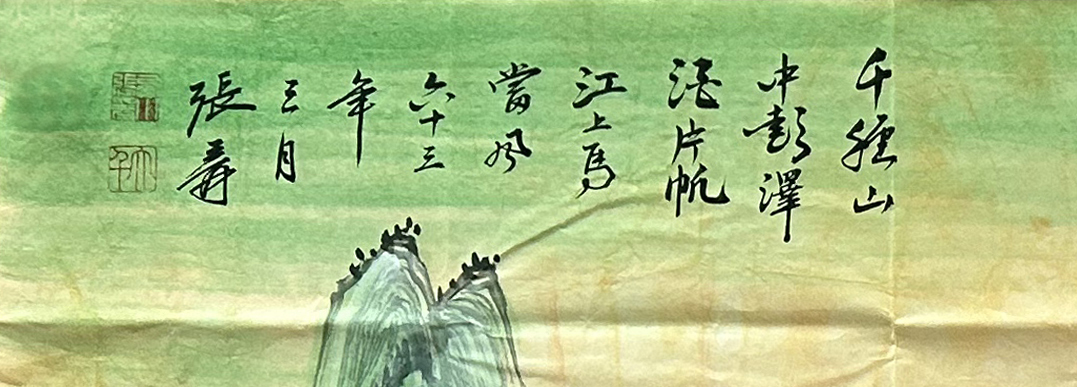 千種山
中彭澤
酒片帆
江上馬
當風
六十三
年
三月
張壽